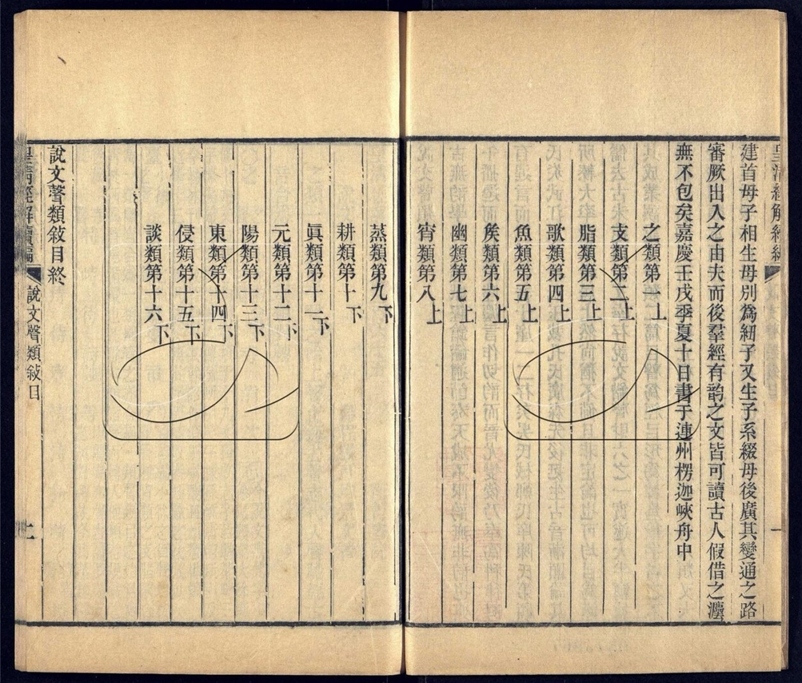 建首母子相生母別為紐子又生子系綴母後廣其變通之路
審厥出入之由夫而後羣經有韵之文皆可讀古人假借之灋
無不包矣嘉慶壬戌季夏十日書于連州楞迦峽舟中
之類第一上
支類第二上
脂類第三上
歌類第四上
魚類第五上
侯類第六上
幽類第七上
宵類第八上
蒸類第九下
耕類第十下
眞類第十一下
元類第十二下
陽類第十三下
東類第十四下
侵類第十五下
談類第十六下
說文聲類敘目終
皇清經解續編
說文聲類敘目